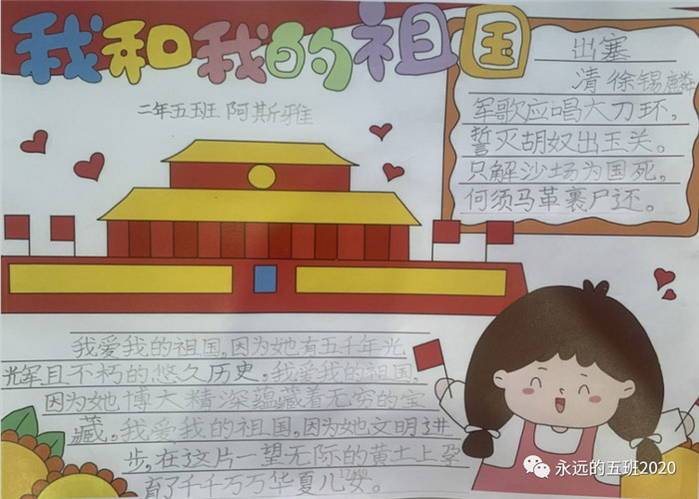 我和我的祖国
二年五班 阿斯雅
出塞
清 徐锡麟
军歌应唱大刀环,
誓灭胡奴出玉关。
只解沙场为国死,
何须马革裹尸还。
我爱我的祖国,因为她有五千年光
光军且不朽的悠久历史。我爱我的祖国,
因为她博大精深蕴藏着无穷的宝
藏。我爱我的祖国,因为她文明进
步,在这片一望无际的黄土上孕
育了千千万万华夏儿女。
永远的五班2020